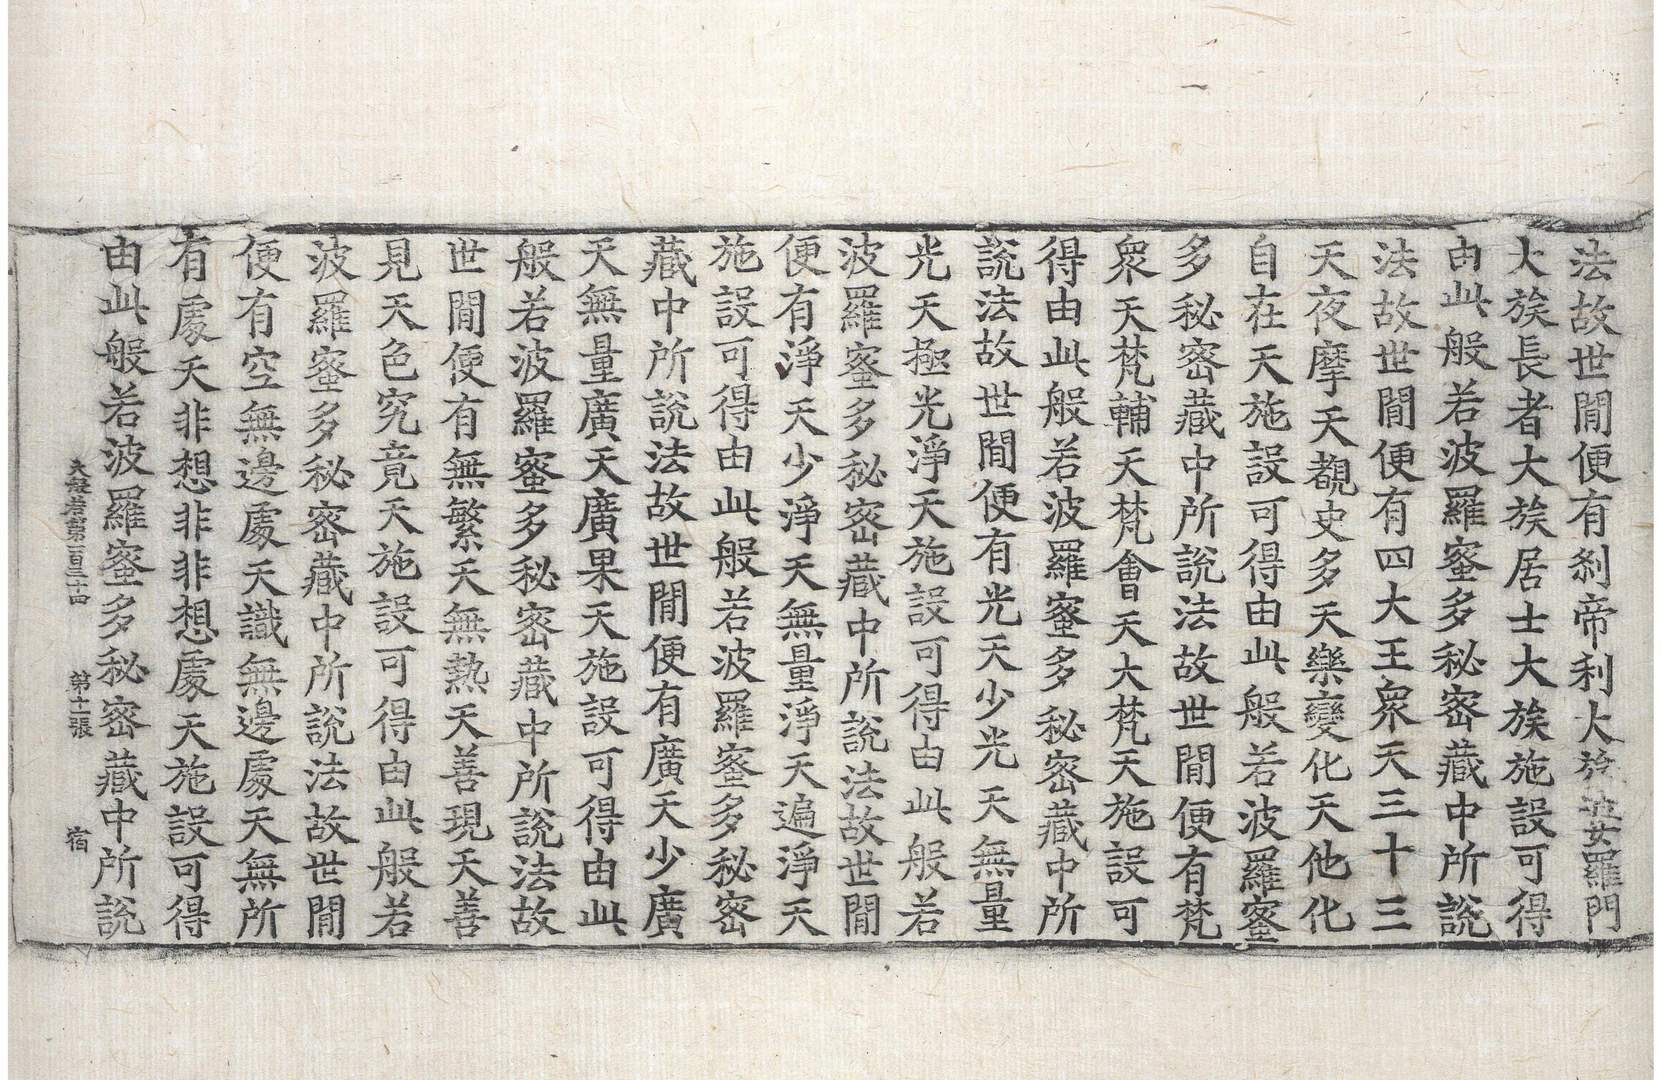 法故世閒便有剎帝利大族婆羅門
大族長者大族居士大族施設可得
由此般若波羅蜜多秘密藏中所說
法故世閒便有四大王衆天三十三
天夜摩天覩史多天樂變化天他化
自在天施設可得由此般若波羅蜜
多秘密藏中所說法故世閒便有梵
衆天梵輔天梵會天大梵天施設可
得由此般若波羅蜜多秘密藏中所
說法故世閒便有光天少光天無量
光天極光淨天施設可得由此般若
波羅蜜多秘密藏中所說法故世閒
便有淨天少淨天無量淨天遍淨天
施設可得由此般若波羅蜜多秘密
藏中所說法故世閒便有廣天少廣
天無量廣天廣果天施設可得由此
般若波羅蜜多秘密藏中所說法故
世閒便有無繁天無熱天善現天善
見天色究竟天施設可得由此般若
波羅蜜多秘密藏中所說法故世閒
便有空無邊處天識無邊處天無所
有處天非想非非想處天施設可得
由此般若波羅蜜多秘密藏中所說
大般若第一百三十四 第十一張 宿